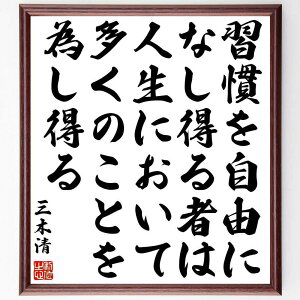 習慣を自由に
なし得る者は
人生において
多くのことを
為し得る
三木清